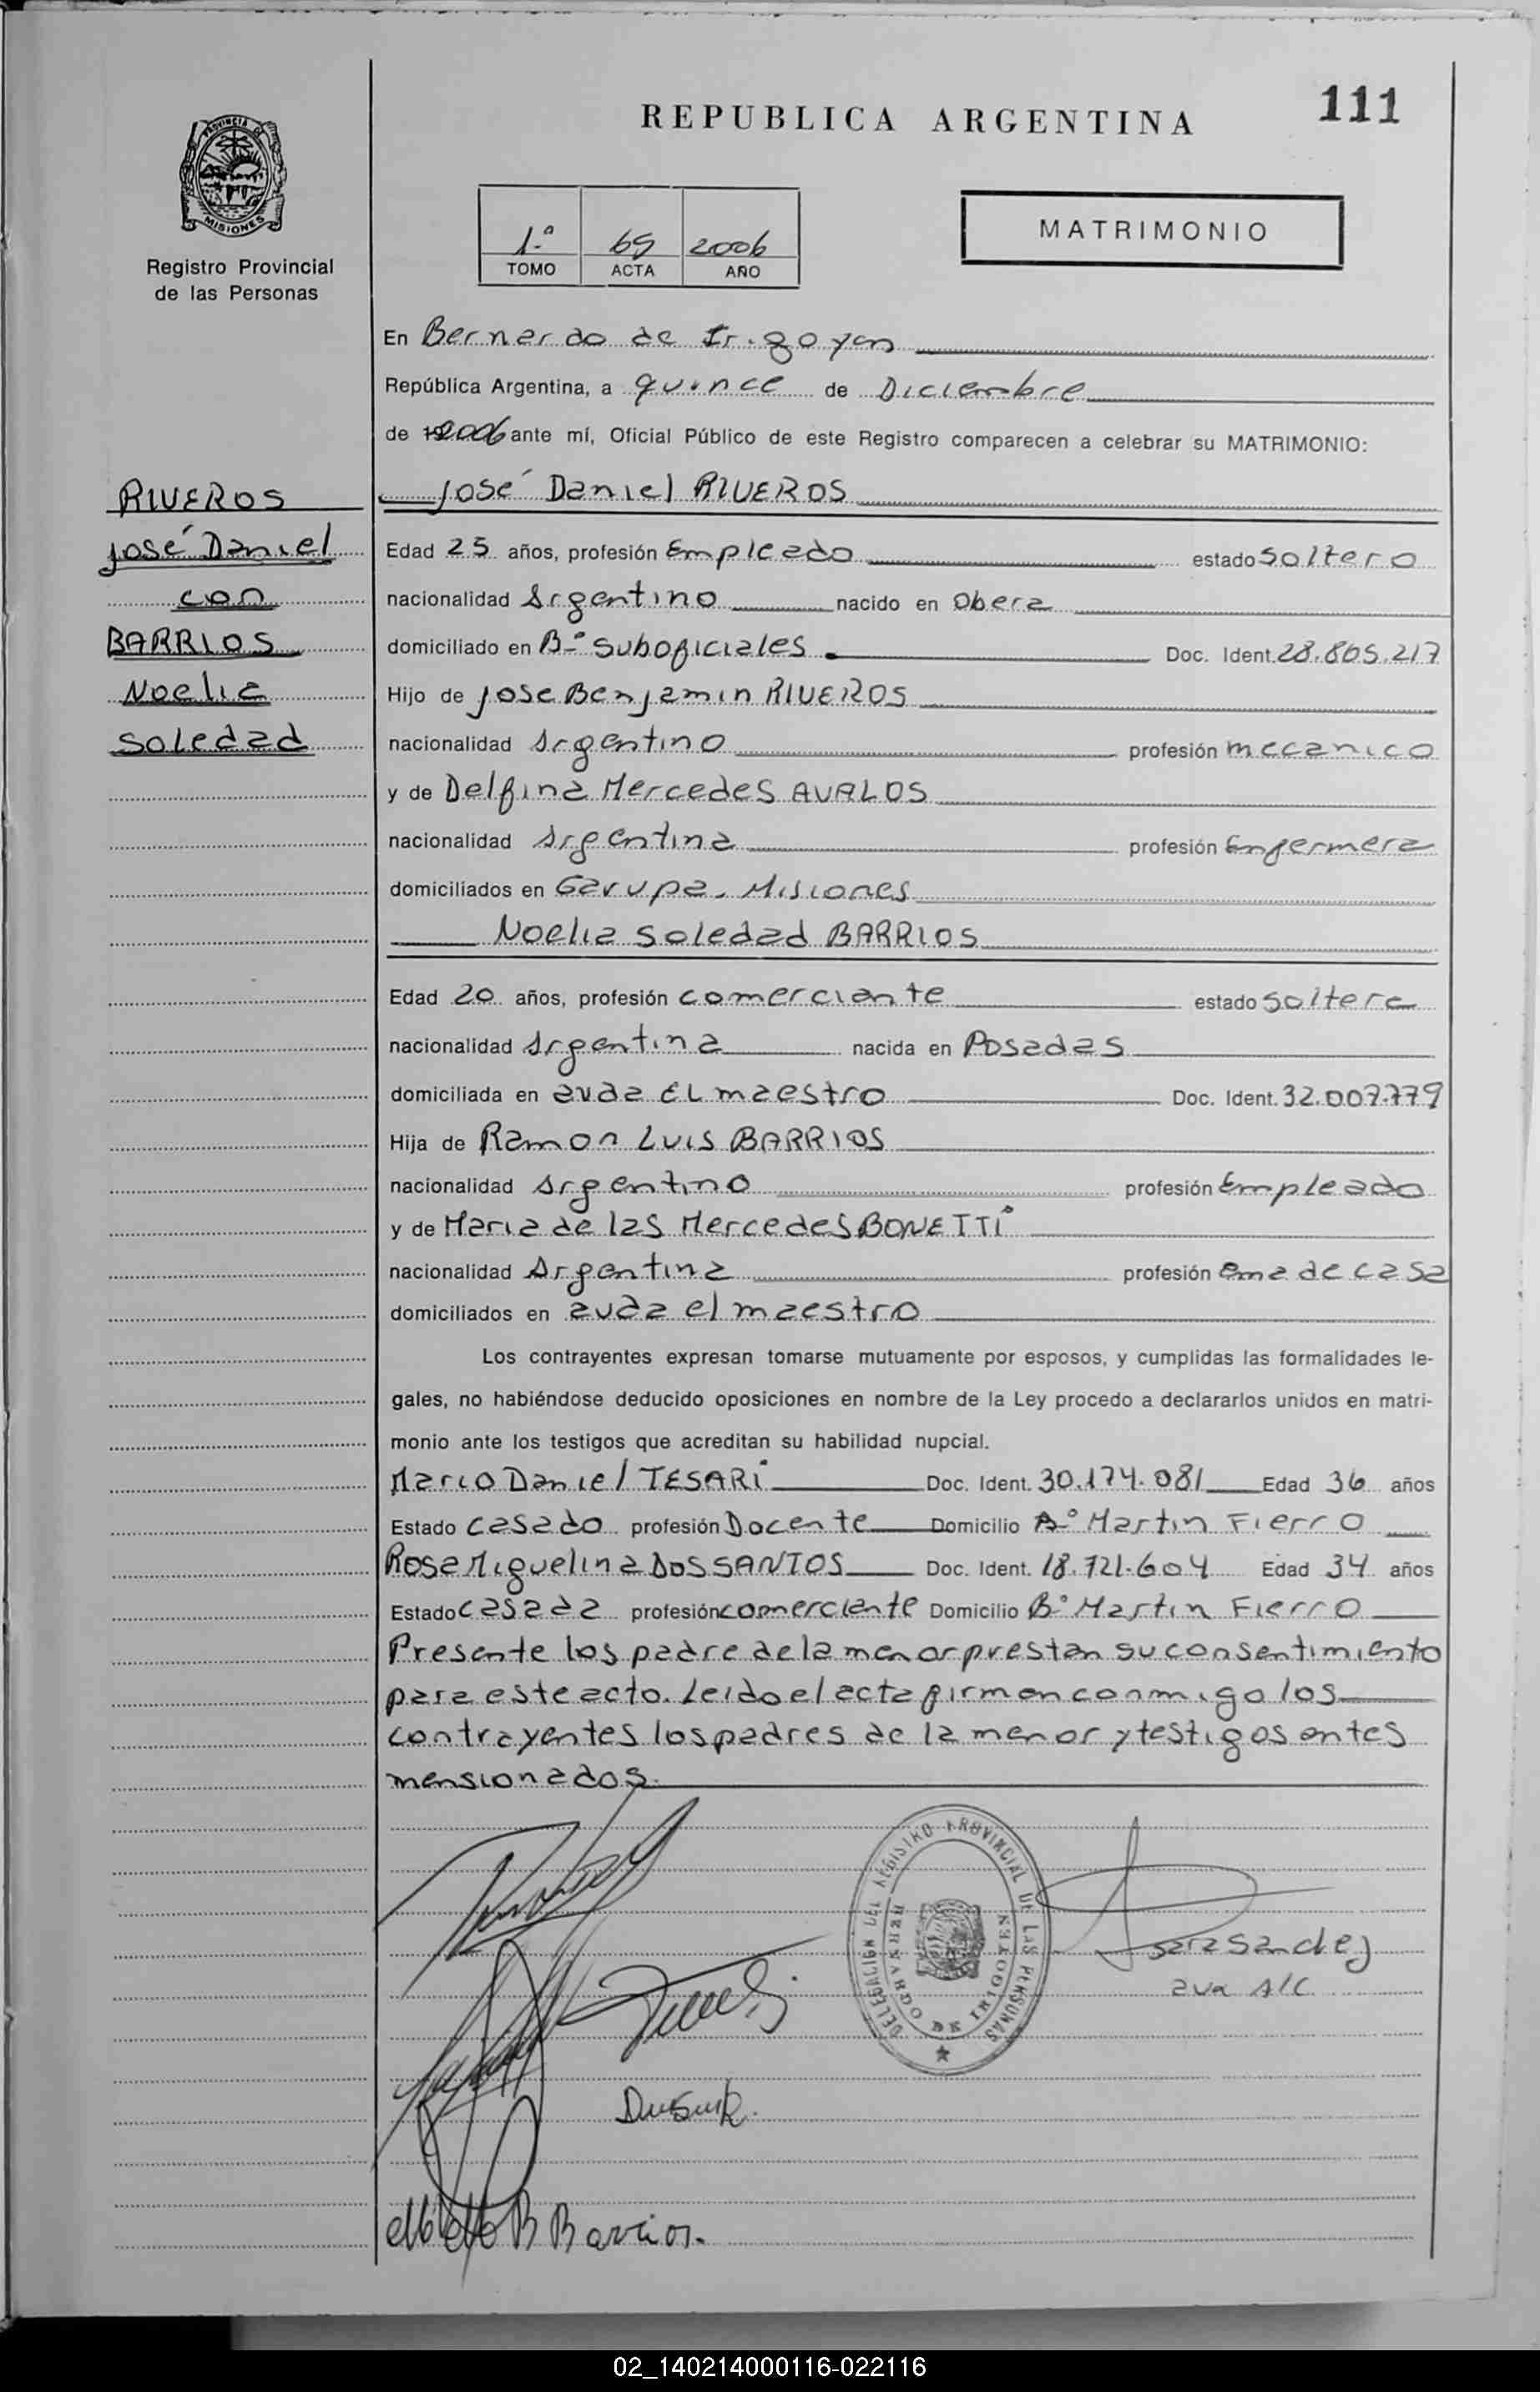 REPUBLICA ARGENTINA
111
PROVINCIA DE
MISIONES
Registro Provincial
de las Personas
1.ª 69 2006
TOMO ACTA AÑO
MATRIMONIO
En Bernardo de Irigoyen
República Argentina, a quince de Diciembre
de 2006 ante mí, Oficial Público de este Registro comparecen a celebrar su MATRIMONIO:
RIVEROS
José Daniel
con
BARRIOS
Noelia
Soledad
José Daniel RIVEROS
Edad 25 años, profesión Empleado estado soltero
nacionalidad Argentino nacido en Obera
domiciliado en B-º Suboficiales Doc. Ident. 28.805.217
Hijo de Jose Benjamin RIVEROS
nacionalidad Argentino profesión mecanico
y de Delfina Mercedes AVALOS
nacionalidad Argentina profesión Enfermera
domiciliados en Garupa. Misiones
Noelia Soledad BARRIOS
Edad 20 años, profesión comerciante estado soltera
nacionalidad Argentina nacida en Posadas
domiciliada en avda EL maestro Doc. Ident. 32.007.779
Hija de Ramon Luis BARRIOS
nacionalidad Argentino profesión Empleado
y de Maria de las Mercedes BONETTI
nacionalidad Argentina profesión ama de casa
domiciliados en avda el maestro
Los contrayentes expresan tomarse mutuamente por esposos, y cumplidas las formalidades le-
gales, no habiéndose deducido oposiciones en nombre de la Ley procedo a declararlos unidos en matri-
monio ante los testigos que acreditan su habilidad nupcial.
Marco Daniel TESARI Doc. Ident. 30.174.081 Edad 36 años
Estado casado profesión Docente Domicilio Bº Martin Fierro
Rosa Miguelina DOS SANTOS Doc. Ident. 18.721.604 Edad 34 años
Estado casada profesión comerciante Domicilio Bº Martin Fierro
Presente los padre de la menor prestan su consentimiento
para este acto. Leido el acta firman conmigo los
contrayentes los padres de la menor y testigos antes
mensionados.
DELEGACION DEL REGISTRO PROVINCIAL DE LAS PERSONAS
BERNARDO DE IRIGOYEN
Sara Sandez
A/C
B Barrios.
02_140214000116-022116